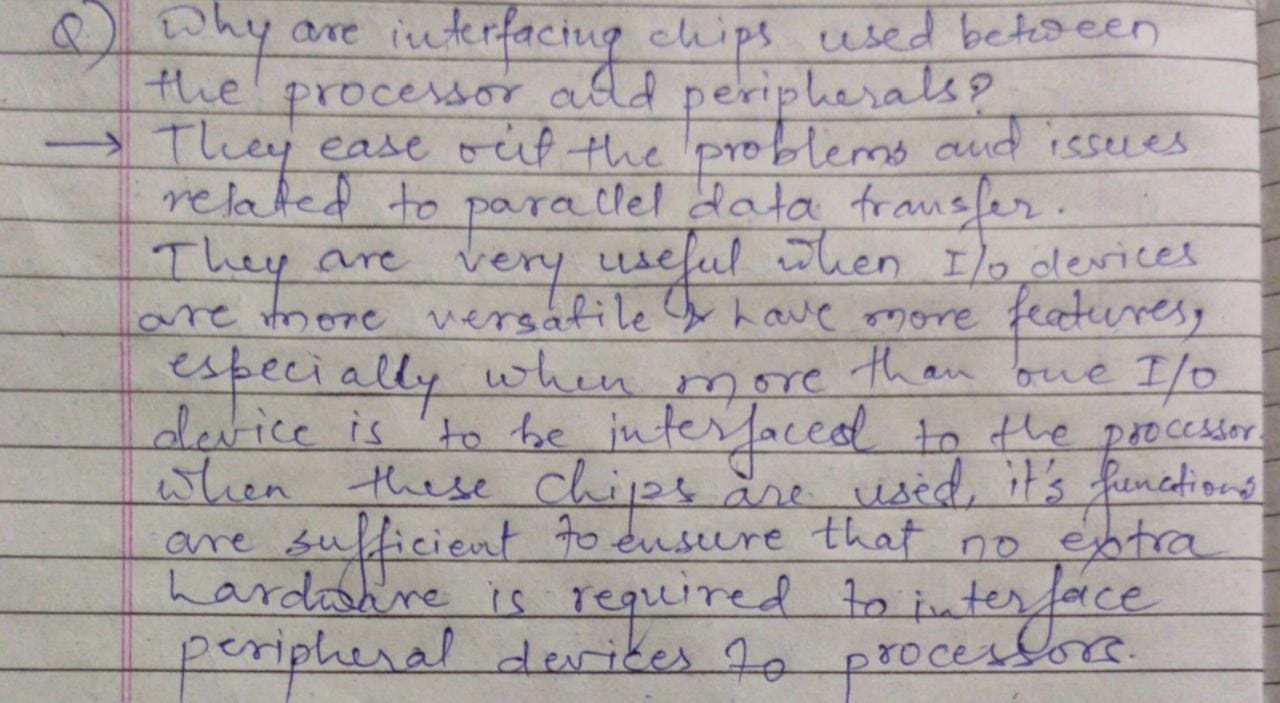 Q) Why are interfacing chips used between
the processor and peripherals?
→ They ease out the problems and issues
related to parallel data transfer.
They are very useful when I/o devices
are more versatile & have more features,
especially when more than one I/o
device is to be interfaced to the processor.
When these chips are used, it's functions
are sufficient to ensure that no extra
hardware is required to interface
peripheral devices to processors.